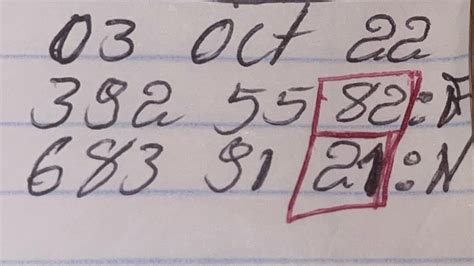 03 Oct 22
392 55 82:F
683 91 21:N